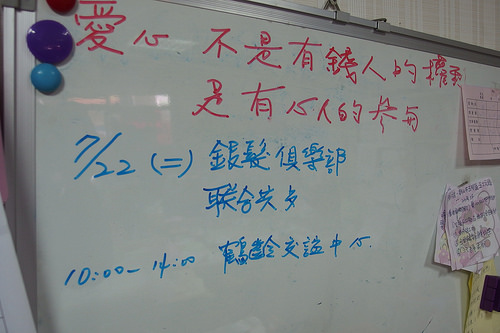 愛心 不是有錢人的權利
是有心人的參與
7/22 (二) 銀髮俱樂部
聯合共乡
10:00-14:00 鶴齡交誼中心